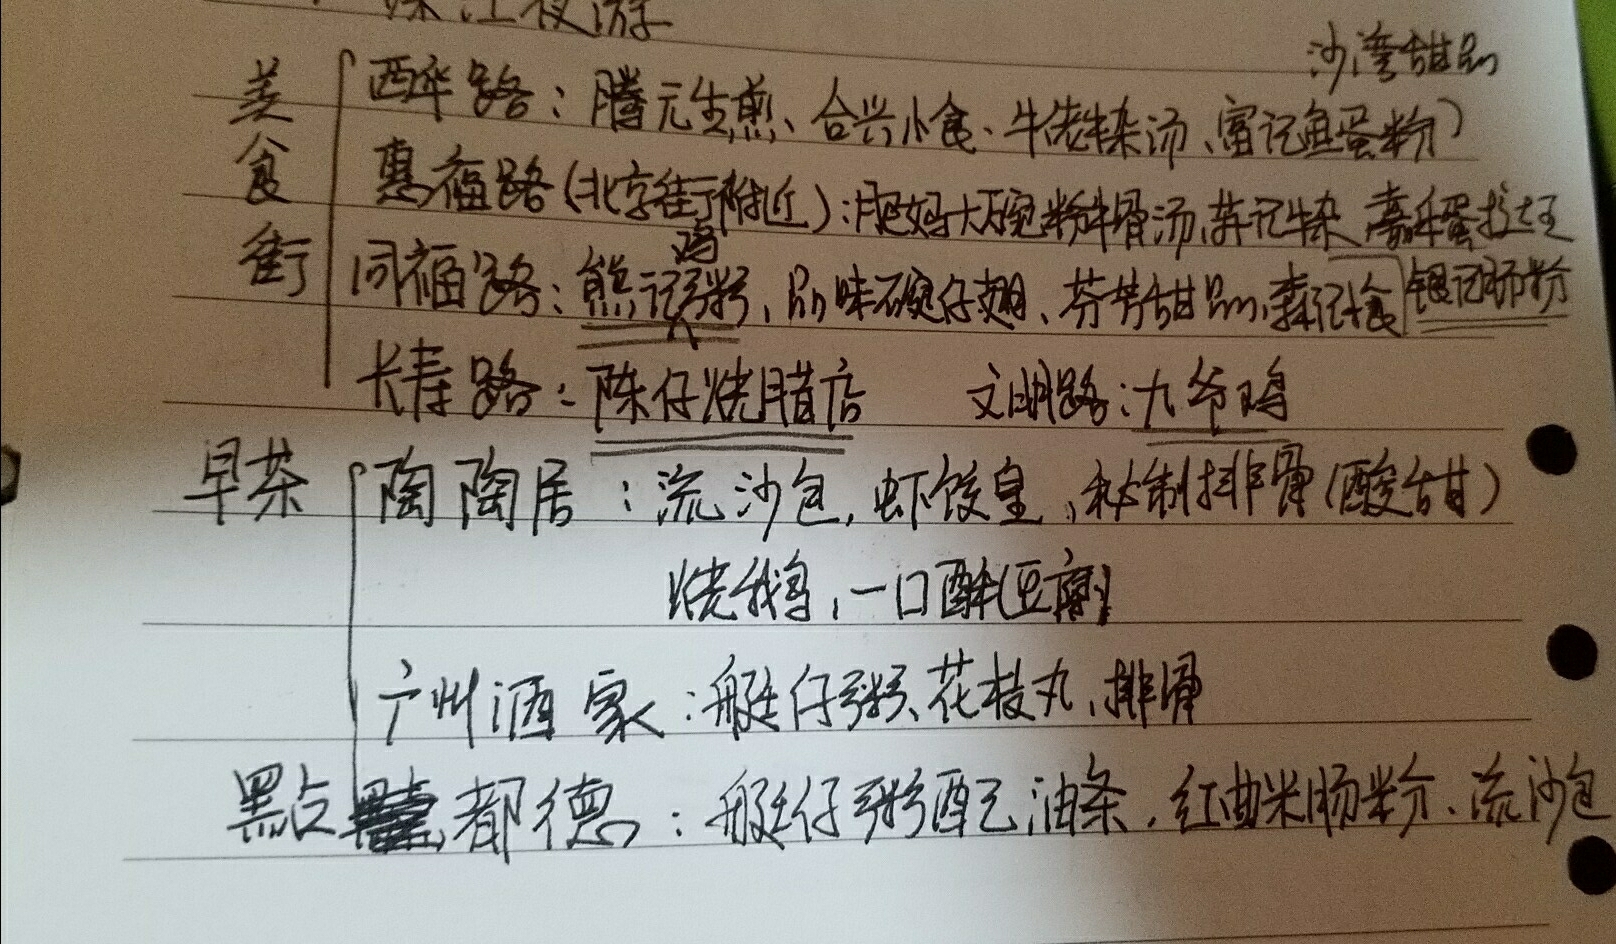 珠江夜游
沙湾甜品
美食街
西华路：腾元生煎、合兴小食、牛佬牛杂汤、富记鱼蛋粉）
惠福路(北京街附近)：肥妈大碗粉牛骨汤,苏记牛杂
同福路：熊记鸡粥、品味碗仔翅、芬芳甜品,森记小食 银记肠粉
长寿路：陈仔烧腊店 文明路：九爷鸡
早茶 陶陶居：流沙包,虾饺皇、秘制排骨(酸甜)
烧鹅,一口酥(豆腐)
广州酒家：艇仔粥、花枝丸、排骨
點点 都德：艇仔粥配油条、红曲米肠粉、流沙包